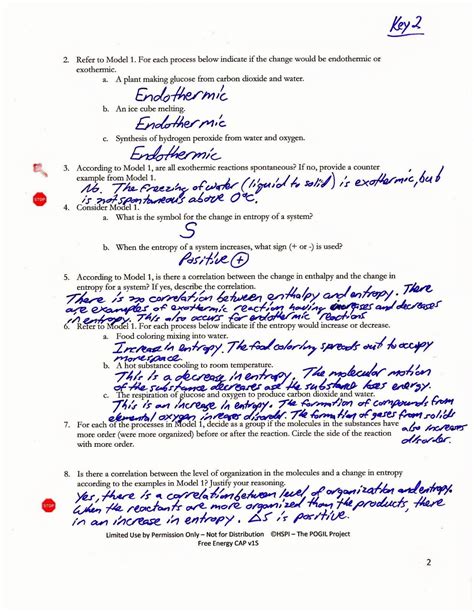 Key 2
2. Refer to Model 1. For each process below indicate if the change would be endothermic or
exothermic.
a. A plant making glucose from carbon dioxide and water.
Endothermic
b. An ice cube melting.
Endothermic
c. Synthesis of hydrogen peroxide from water and oxygen.
Endothermic
3. According to Model 1, are all exothermic reactions spontaneous? If no, provide a counter
example from Model 1.
No. The freezing of water (liquid to solid) is exothermic, but
STOP
is not spontaneous above 0°C.
4. Consider Model 1.
a. What is the symbol for the change in entropy of a system?
S
b. When the entropy of a system increases, what sign (+ or -) is used?
Positive (+)
5. According to Model 1, is there a correlation between the change in enthalpy and the change in
entropy for a system? If yes, describe the correlation.
There is no correlation between enthalpy and entropy. There
are examples of exothermic reaction having increases and decreases
in entropy. This also occurs for endothermic reactions
6. Refer to Model 1. For each process below indicate if the entropy would increase or decrease.
a. Food coloring mixing into water.
Increase in entropy. The food coloring spreads out to occupy
more space.
b. A hot substance cooling to room temperature.
This is a decrease in entropy. The molecular motion
of the substance decreases as the substance loses energy.
c. The respiration of glucose and oxygen to produce carbon dioxide and water.
This is an increase in entropy. The formation of compounds from
elemental oxygen increases disorder. The formation of gases from solids
also increases
disorder.
7. For each of the processes in Model 1, decide as a group if the molecules in the substances have
more order (were more organized) before or after the reaction. Circle the side of the reaction
with more order.
8. Is there a correlation between the level of organization in the molecules and a change in entropy
according to the examples in Model 1? Justify your reasoning.
Yes, there is a correlation between level of organization and entropy.
STOP
When the reactants are more organized than the products, there
in an increase in entropy. ΔS is positive.
Limited Use by Permission Only – Not for Distribution ©HSPI – The POGIL Project
Free Energy CAP v1S
2